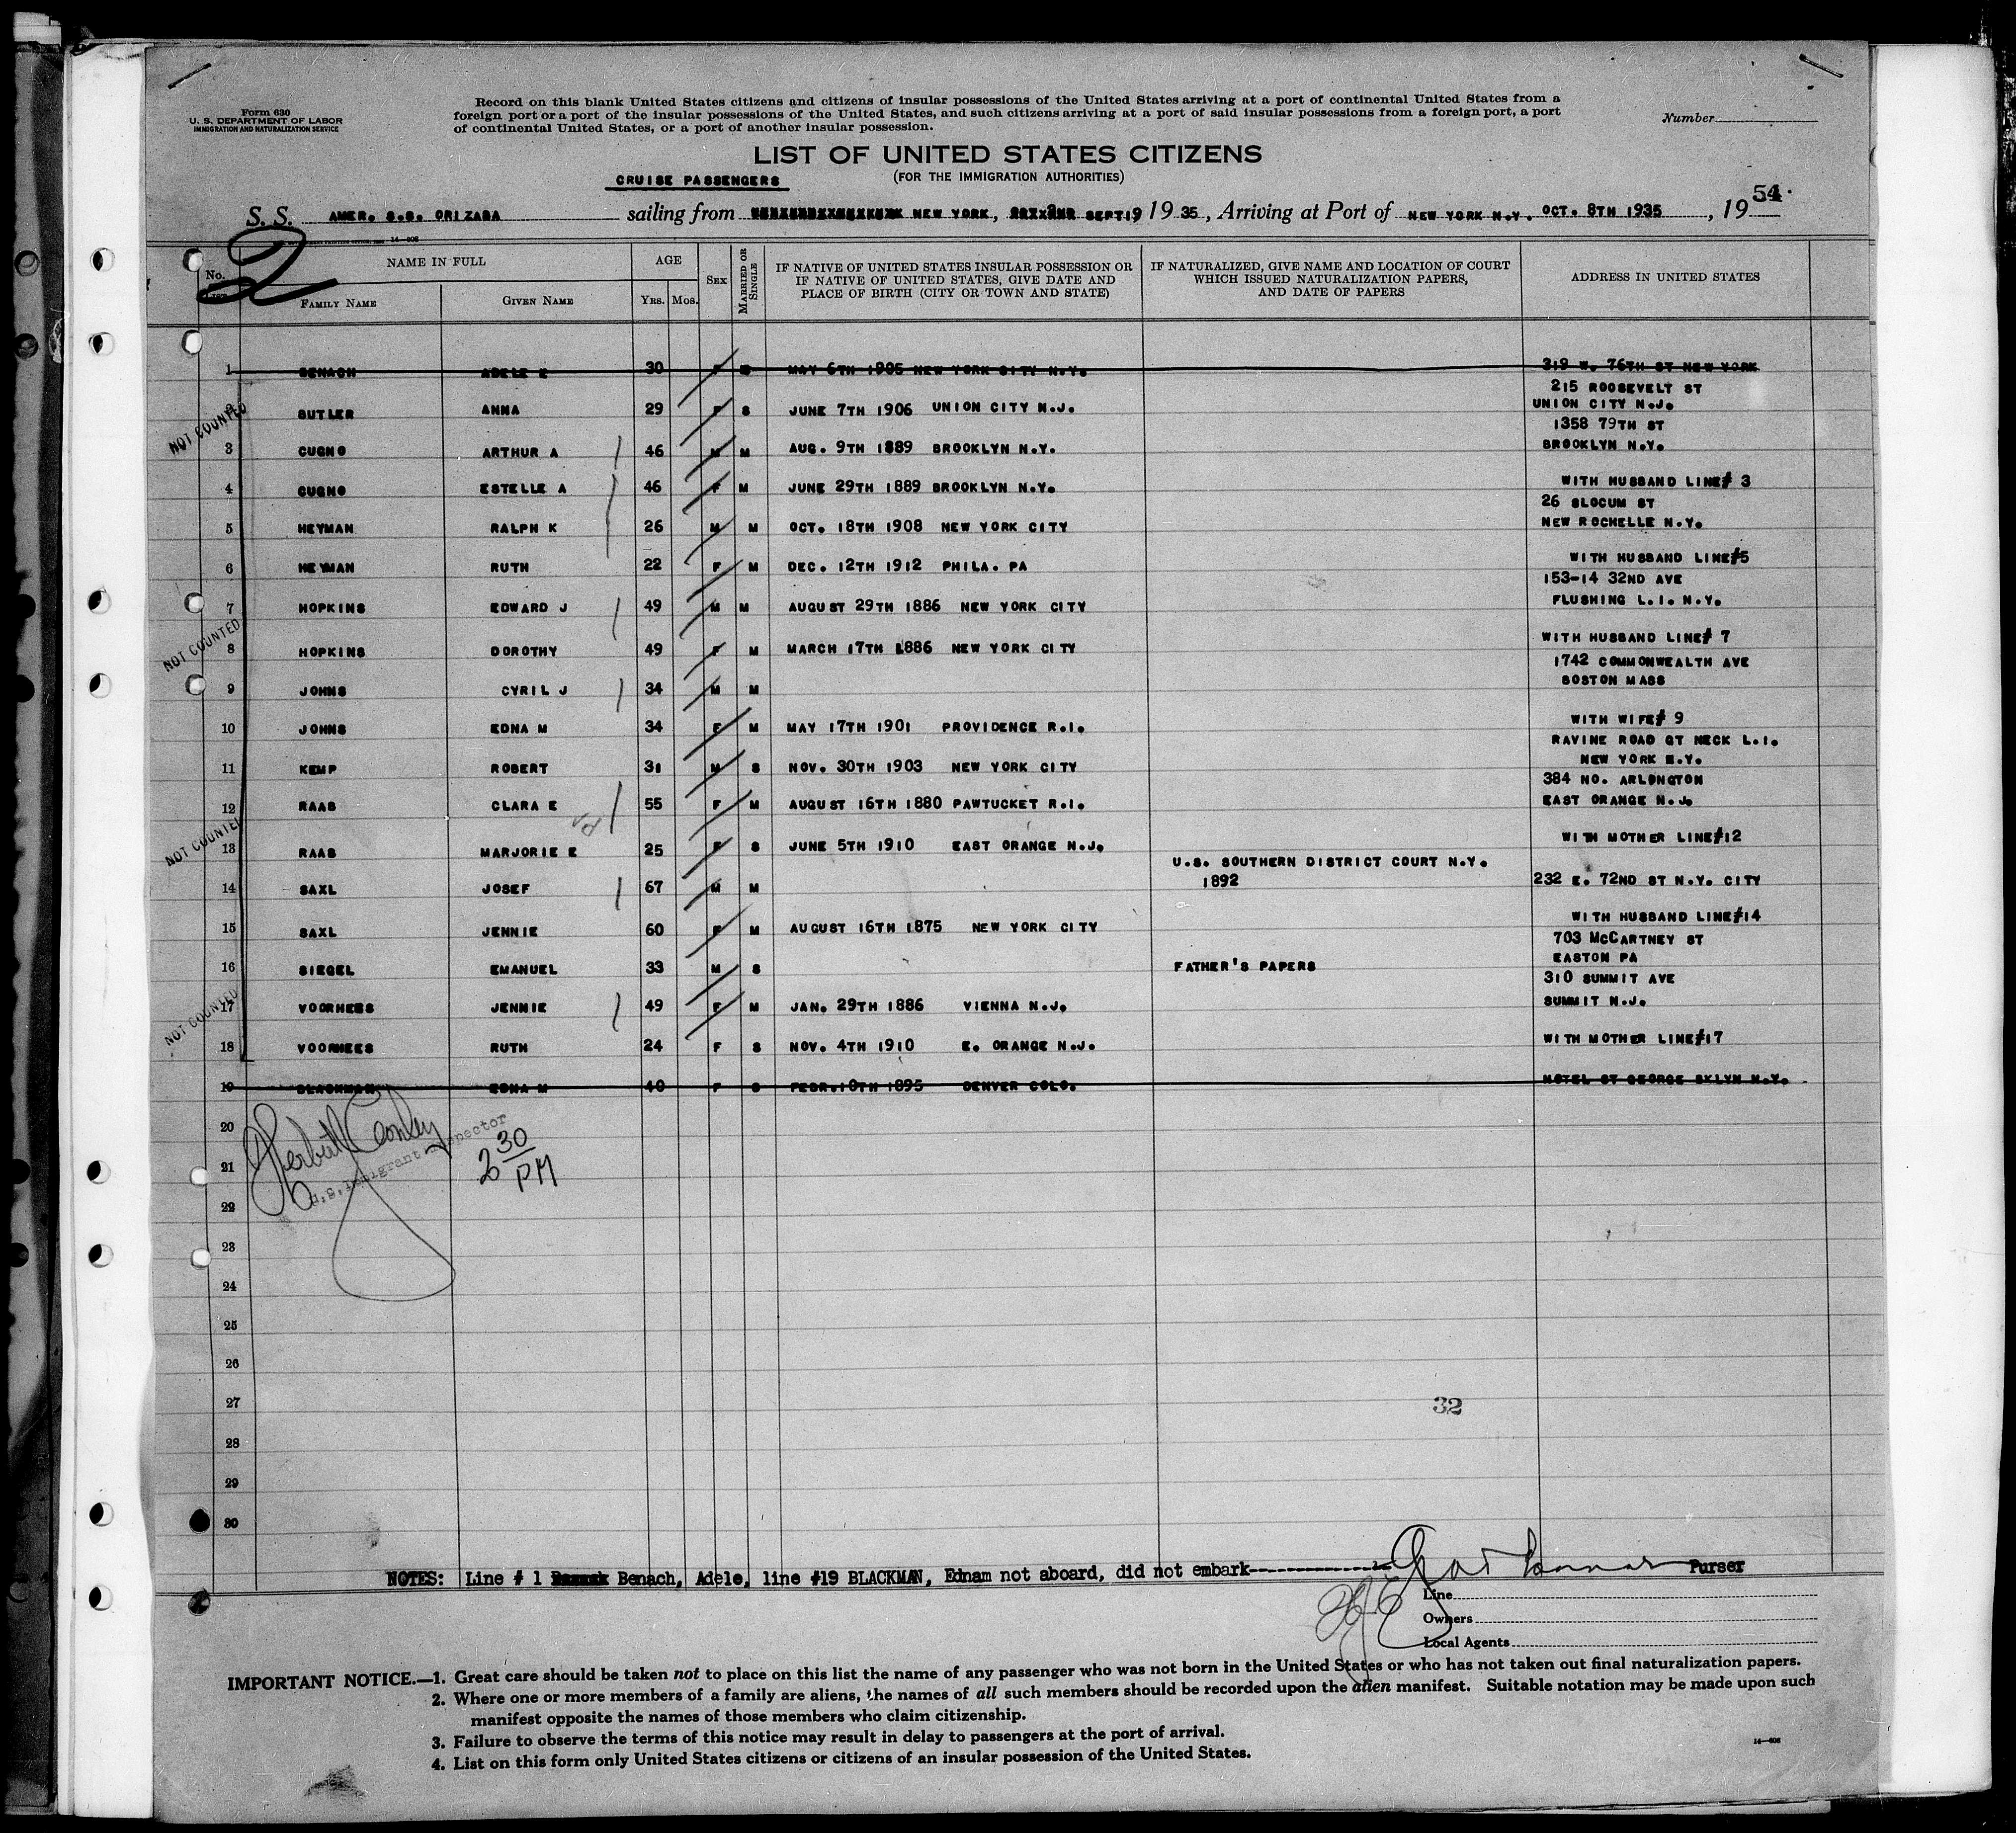 Form 630
U. S. DEPARTMENT OF LABOR
IMMIGRATION AND NATURALIZATION SERVICE
Record on this blank United States citizens and citizens of insular possessions of the United States arriving at a port of continental United States from a
foreign port or a port of the insular possessions of the United States, and such citizens arriving at a port of said insular possessions from a foreign port, a port
of continental United States, or a port of another insular possession.
Number
LIST OF UNITED STATES CITIZENS
(FOR THE IMMIGRATION AUTHORITIES)
CRUISE PASSENGERS
54
S. S. AMER. S.S. ORIZABA sailing from NEW YORK, SEPT19 19 35, Arriving at Port of NEW YORK N.Y. OCT. 8TH 1935, 19
2
No. NAME IN FULL AGE SEX MARRIED OR SINGLE IF NATIVE OF UNITED STATES INSULAR POSSESSION OR IF NATIVE OF UNITED STATES, GIVE DATE AND PLACE OF BIRTH (CITY OR TOWN AND STATE) IF NATURALIZED, GIVE NAME AND LOCATION OF COURT WHICH ISSUED NATURALIZATION PAPERS, AND DATE OF PAPERS ADDRESS IN UNITED STATES
FAMILY NAME GIVEN NAME YRS. MOS.
1 BENACH ADELE E 30 F S MAY 6TH 1905 NEW YORK CITY N.Y. 319 W. 76TH ST NEW YORK
215 ROOSEVELT ST
2 BUTLER ANNA 29 F S JUNE 7TH 1906 UNION CITY N.J. UNION CITY N.J.
1358 79TH ST
3 CUGNO ARTHUR A 46 M M AUG. 9TH 1889 BROOKLYN N.Y. BROOKLYN N.Y.
4 CUGNO ESTELLE A 46 F M JUNE 29TH 1889 BROOKLYN N.Y. WITH HUSBAND LINE# 3
26 SLOCUM ST
5 HEYMAN RALPH K 26 M M OCT. 18TH 1908 NEW YORK CITY NEW ROCHELLE N.Y.
6 HEYMAN RUTH 22 F M DEC. 12TH 1912 PHILA. PA WITH HUSBAND LINE#5
153-14 32ND AVE
7 HOPKINS EDWARD J 49 M M AUGUST 29TH 1886 NEW YORK CITY FLUSHING L.I. N.Y.
8 HOPKINS DOROTHY 49 F M MARCH 17TH 1886 NEW YORK CITY WITH HUSBAND LINE# 7
1742 COMMONWEALTH AVE
9 JOHNS CYRIL J 34 M M BOSTON MASS
10 JOHNS EDNA M 34 F M MAY 17TH 1901 PROVIDENCE R.I. WITH WIFE# 9
RAVINE ROAD GT NECK L.I.
11 KEMP ROBERT 31 M S NOV. 30TH 1903 NEW YORK CITY NEW YORK N.Y.
384 NO. ARLINGTON
12 RAAB CLARA E 55 F M AUGUST 16TH 1880 PAWTUCKET R.I. EAST ORANGE N.J.
13 RAAB MARJORIE E 25 F S JUNE 5TH 1910 EAST ORANGE N.J. WITH MOTHER LINE#12
U.S. SOUTHERN DISTRICT COURT N.Y.
14 SAXL JOSEF 67 M M 1892 232 E. 72ND ST N.Y. CITY
15 SAXL JENNIE 60 F M AUGUST 16TH 1875 NEW YORK CITY WITH HUSBAND LINE#14
703 MCCARTNEY ST
16 SIEGEL EMANUEL 33 M S FATHER'S PAPERS EASTON PA
310 SUMMIT AVE
17 VOORHEES JENNIE 49 F M JAN. 29TH 1886 VIENNA N.J. SUMMIT N.J.
18 VOORHEES RUTH 24 F S NOV. 4TH 1910 E. ORANGE N.J. WITH MOTHER LINE#17
19 BLACKMAN EDNA M 40 F S FEBR. 10TH 1895 DENVER COLO. HOTEL ST GEORGE BKLYN N.Y.
NOT COUNTED
NOT COUNTED
NOT COUNTED
NOT COUNTED
20
21
22
23
24
25
26
27
28
29
30
U.S. Immigrant Inspector
2 30 PM
32
NOTES: Line # 1 Benach, Adele, line #19 BLACKMAN, Ednam not aboard, did not embark Purser
Line
Owners
Local Agents
IMPORTANT NOTICE.—1. Great care should be taken not to place on this list the name of any passenger who was not born in the United States or who has not taken out final naturalization papers.
2. Where one or more members of a family are aliens, the names of all such members should be recorded upon the alien manifest. Suitable notation may be made upon such
manifest opposite the names of those members who claim citizenship.
3. Failure to observe the terms of this notice may result in delay to passengers at the port of arrival.
4. List on this form only United States citizens or citizens of an insular possession of the United States.